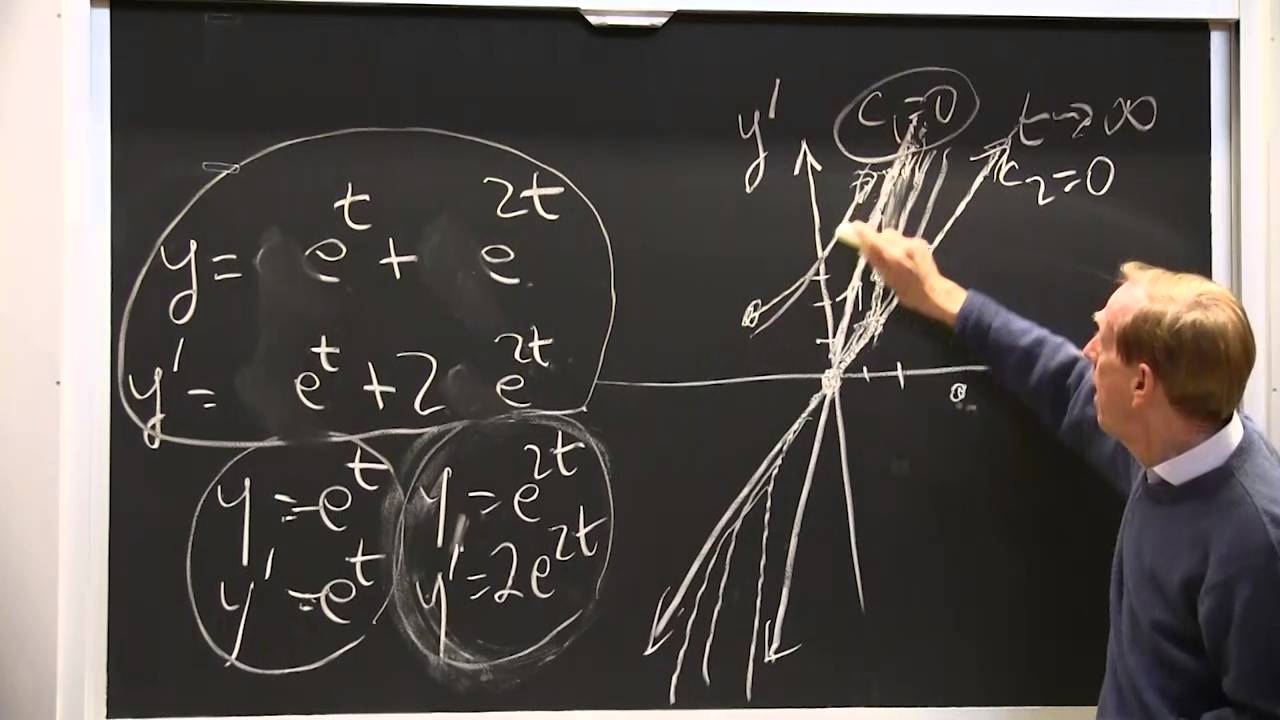 y = e^t + e^{2t}
y' = e^t + 2 e^{2t}
y = -e^t
y' = -e^t
y = e^{2t}
y' = 2e^{2t}
y'
c_1=0
t→∞
c_2=0